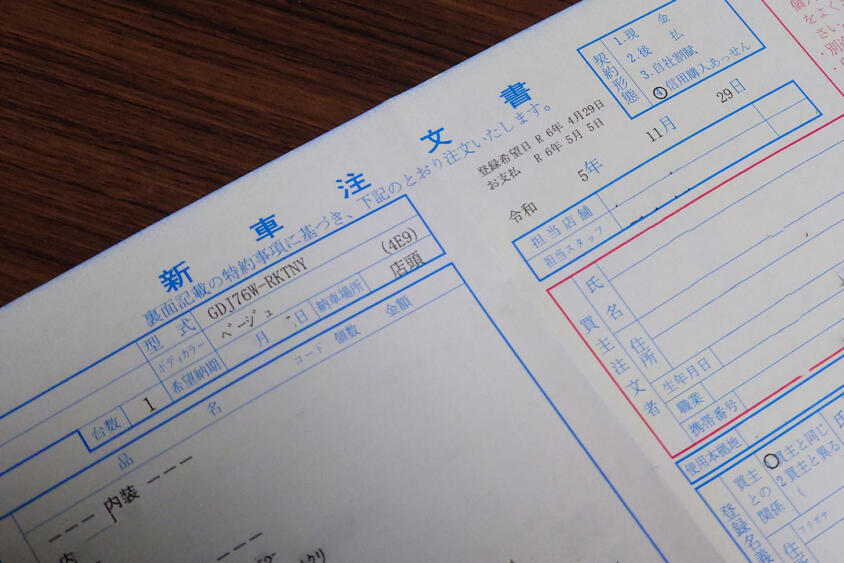 新車注文書
裏面記載の特約事項に基づき、下記のとおり注文いたします。
契約形態
1.現金
2.後払
3.自社割賦
④信用購入あっせん
登録希望日 R 6年 4月29日
お支払 R 6年 5月 5日
令和 5年 11月 29日
担当店舗
担当スタッフ
型式 GDJ76W-RKTNY
ボディカラー ベージュ (4E9)
希望納期 月 日 納車場所 店頭
台数 1
品名 コード 個数 金額
--- 内装 ---
買主注文者
氏名
住所
生年月日
職業
携帯番号
使用本拠地
登録名義
買主との関係
買主と同じ
2買主と異る
(
フリガナ
氏